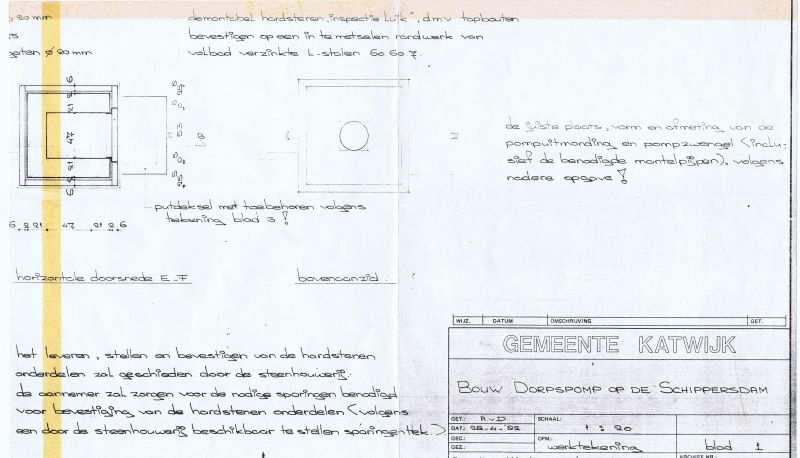 20 mm
demontabel hardstenen "inspectie luik", d.m.v. tapbouten
bevestigen op een in te metselen randwerk van
gaten ø 20 mm
volbad verzinkte L-stalen 60.60.7.
6 2 21 47 21 2 6
B
de juiste plaats, vorm en afmeting van de
pompuitmonding en pompzwengel (inclu-
sief de benodigde mantelpijpen), volgens
nadere opgave!
putdeksel met toebehoren volgens
tekening blad 3!
6 2 21 47 21 2 6
horizontale doorsnede E-F
bovenaanzicht.
het leveren, stellen en bevestigen van de hardstenen
onderdelen zal geschieden door de steenhouwerij.
de aannemer zal zorgen voor de nodige sparingen benodigd
voor bevestiging van de hardstenen onderdelen (volgens
een door de steenhouwerij beschikbaar te stellen sparingentek.)
WIJZ. DATUM OMSCHRIJVING GET.
GEMEENTE KATWIJK
BOUW DORPSPOMP OP DE SCHIPPERSDAM
GET.: A.v.D. SCHAAL: 1:20
DAT.: 28-4-'82
GEC.: OPM.: werktekening blad 1
GEZ.:
ARCHIEF NR.: